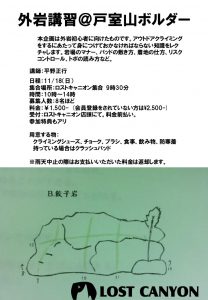 外岩講習@戸室山ボルダー
本企画は外岩初心者に向けたものです。アウトドアクライミング
をするにあたって身につけておかなければならない知識をレク
チャします。岩場のマナー、パッドの敷き方、着地の仕方、リスク
コントロール、トポの読み方など。
講師:平野正行
日程:11/18(日)
集合場所:ロストキャニオン集合 9時30分
時間:10時～14時
募集人数:8名ほど
料金:¥1,500-（会員登録をされていない方は¥2,500-）
受付:ロストキャニオン店頭にて。料金前払い。
参加特典もアリ
用意する物:
クライミングシューズ、チョーク、ブラシ、食事、飲み物、防寒着
持っている場合はクラッシュパッド
※雨天中止の際はお支払いいただいた料金は返却します。
B.餃子岩
LOST CANYON